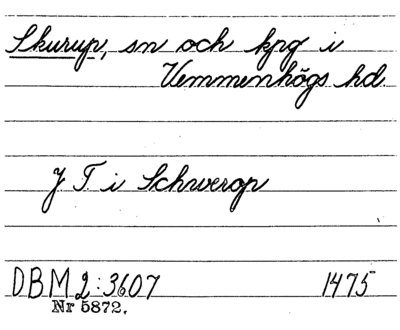 Skurup, sn och kpg i
Vemmenhögs hd.
J T. i Schwerop
DBM 2:3607 1475
Nr 5872.